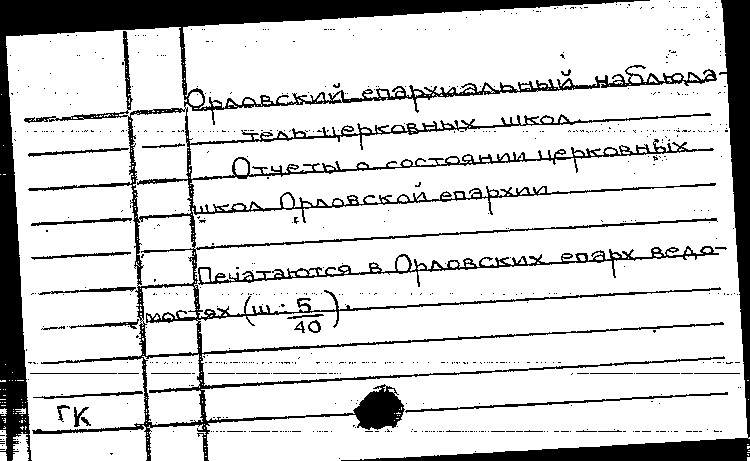 Орловский епархиальный наблюда-
тель церковных школ.
Отчеты о состоянии церковных
школ Орловской епархии.
Печатаются в Орловских епарх. ведо-
мостях (ш.: 5/40).
ГК